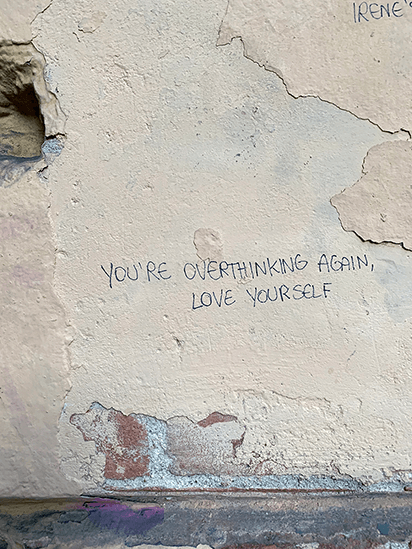 IRENE'S
YOU'RE OVERTHINKING AGAIN,
LOVE YOURSELF